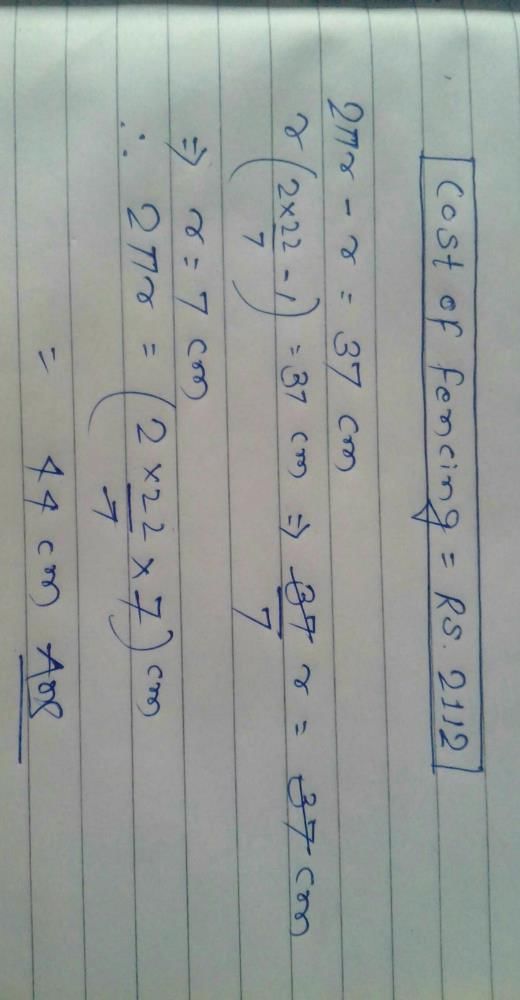 Cost of fencing = RS. 2112
2πr - r = 37 cm
r (2×22/7 - 1) = 37 cm ⇒ 37/7 r = 37 cm
⇒ r = 7 cm
∴ 2πr = (2×22/7 × 7) cm
= 44 cm Ans